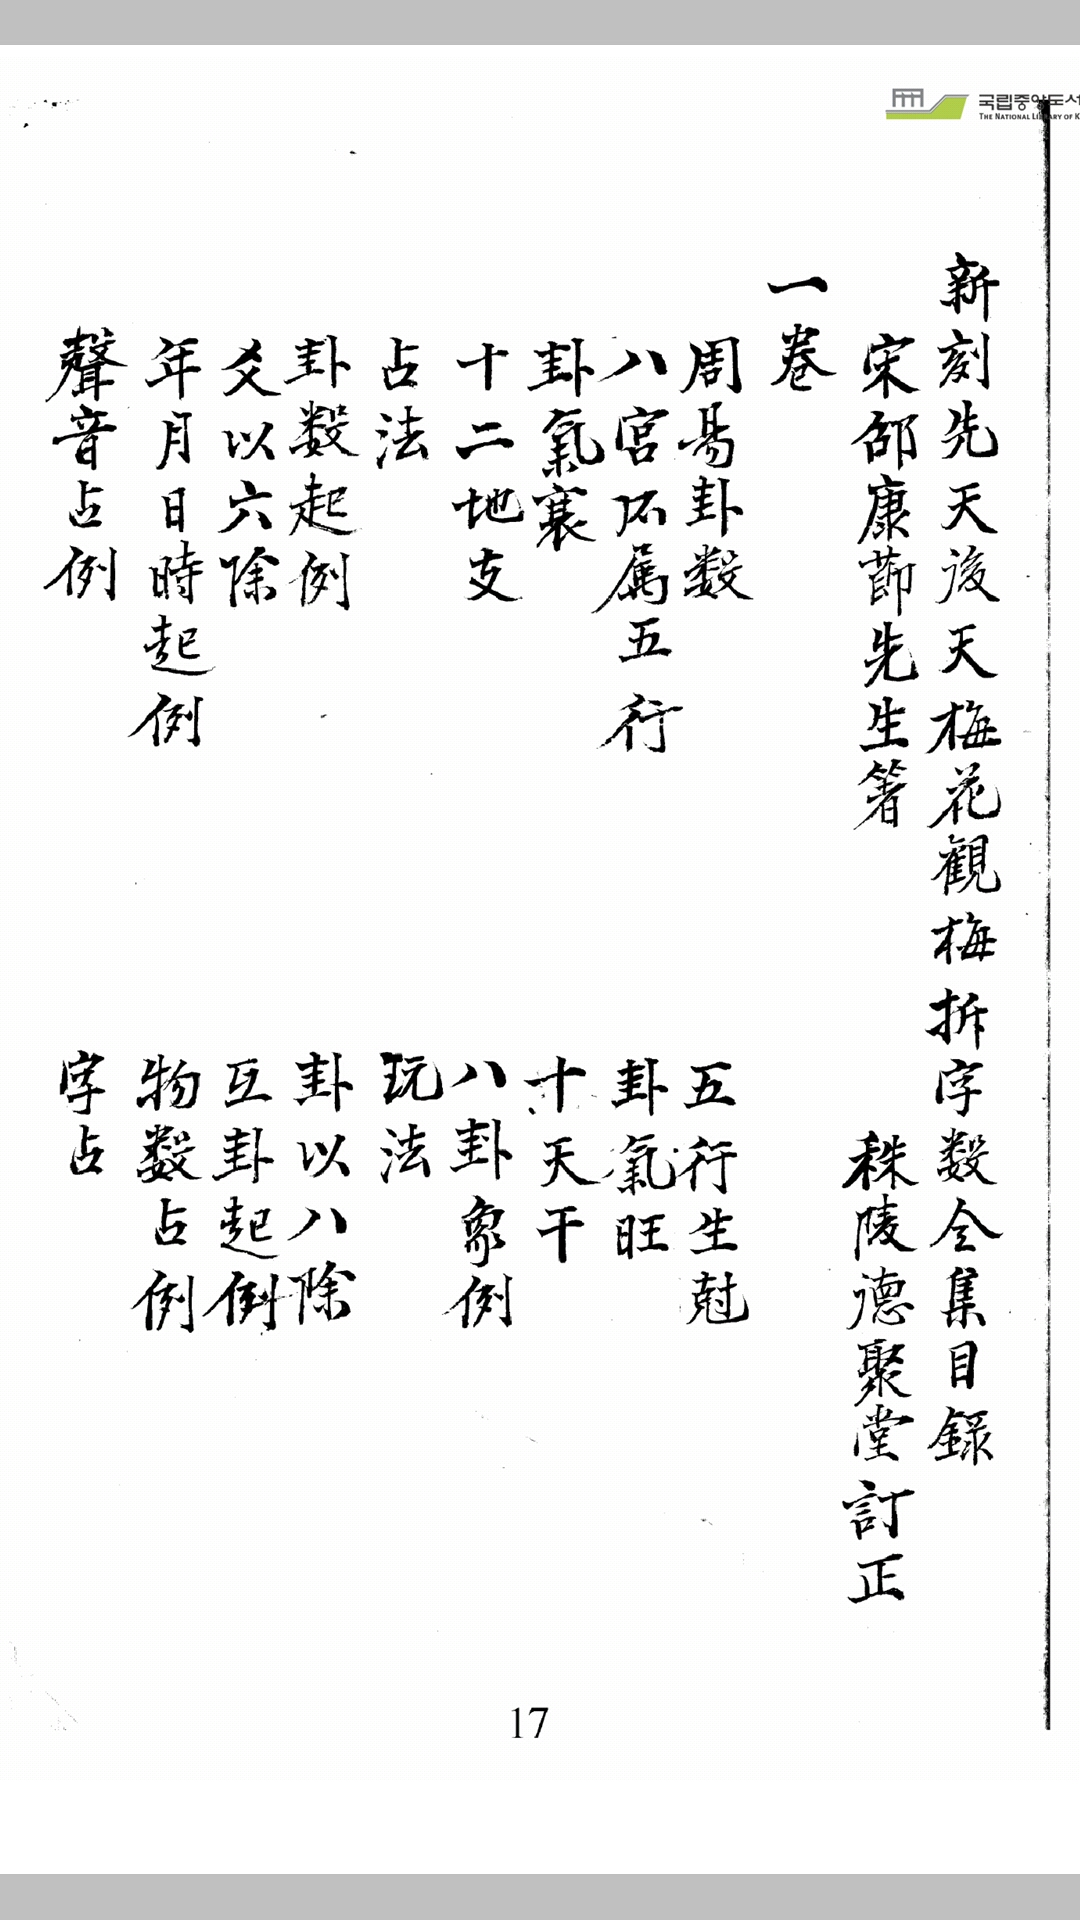 국립중앙도서
THE NATIONAL LIBRARY OF K
新刻先天後天梅花觀梅拆字数全集目録
宋邵康莭先生著 秣陵德聚堂訂正
一卷
周昜卦数 五行生尅
八宫所属五行 卦氣旺
卦氣衰 十天干
十二地支 八卦象例
占法 玩法
卦数起例 卦以八除
爻以六除 互卦起例
年月日時起例 物数占例
聲音占例 字占
17